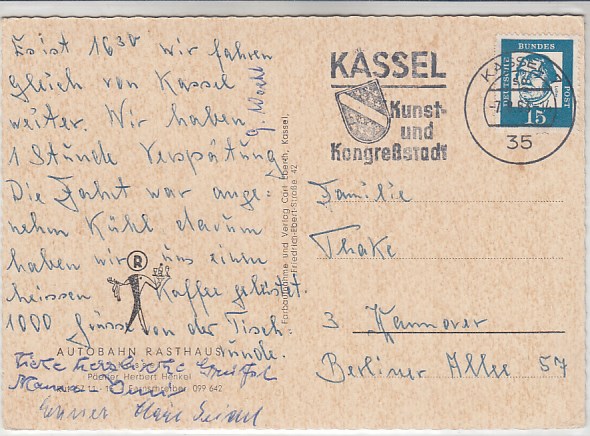 Es ist 16³⁰ wir fahren
gleich von Kassel
weiter. Wir haben
1 Stunde Verspätung
Die Fahrt war ange-
nehm Kühl darum
haben wir uns einen
heissen Kaffee geleistet.
1000 Grüsse von der Tisch-
runde.
AUTOBAHN RASTHAUS
Viele herzliche Grüße
Pächter Herbert Henkel
Fernschreiber 099 642
Farbaufnahme und Verlag Carl Eberth, Kassel,
Friedrich-Ebert-Straße 42
KASSEL
Kunst-
und
Kongreßstadt
KASSEL
35
DEUTSCHE BUNDES POST
15
Familie
Thake
3 Hannover
Berliner Allee 57